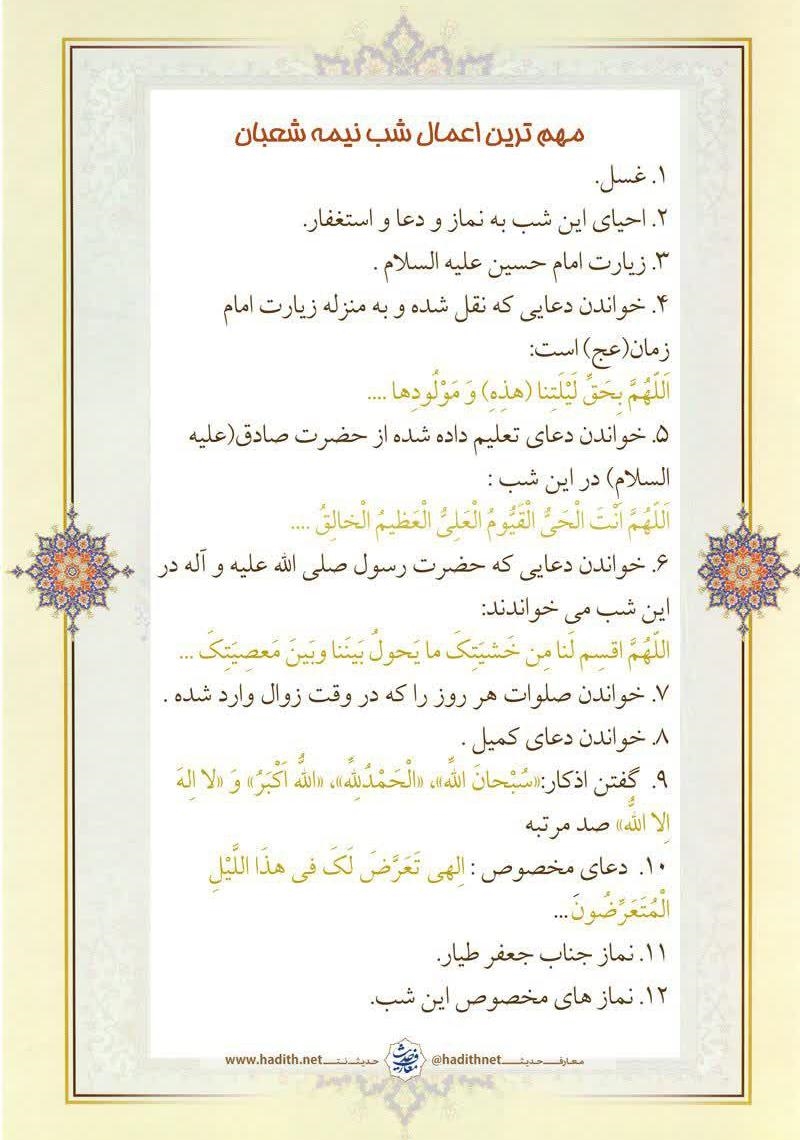 مهم ترین اعمال شب نیمه شعبان
۱. غسل.
۲. احیای این شب به نماز و دعا و استغفار.
۳. زیارت امام حسین علیه السلام .
۴. خواندن دعایی که نقل شده و به منزله زیارت امام
زمان(عج) است:
اَللّهُمَّ بِحَقِّ لَیْلَتِنا (هذِهِ) وَ مَوْلُودِها ....
۵. خواندن دعای تعلیم داده شده از حضرت صادق(علیه
السلام) در این شب :
اَللّهُمَّ اَنْتَ الْحَیُّ الْقَیُّومُ الْعَلِیُّ الْعَظیمُ الْخالِقُ ....
۶. خواندن دعایی که حضرت رسول صلی الله علیه و آله در
این شب می خواندند:
اللّهُمَّ اقسِم لَنا مِن خَشیَتِکَ ما یَحولُ بَینَنا وبَینَ مَعصِیَتِکَ ...
۷. خواندن صلوات هر روز را که در وقت زوال وارد شده .
۸. خواندن دعای کمیل .
۹. گفتن اذکار:«سُبْحانَ اللّهِ»، «الْحَمْدُلِلّهِ»، «اللّهُ اَکْبَرُ» وَ «لا اِلهَ
اِلا اللّهُ» صد مرتبه
۱۰. دعای مخصوص : اِلهی تَعَرَّضَ لَکَ فی هذَا اللَّیْلِ
الْمُتَعَرِّضُونَ...
۱۱. نماز جناب جعفر طیار.
۱۲. نماز های مخصوص این شب.
معارف حدیث @hadithnet معارف حدیث حدیث نت www.hadith.net